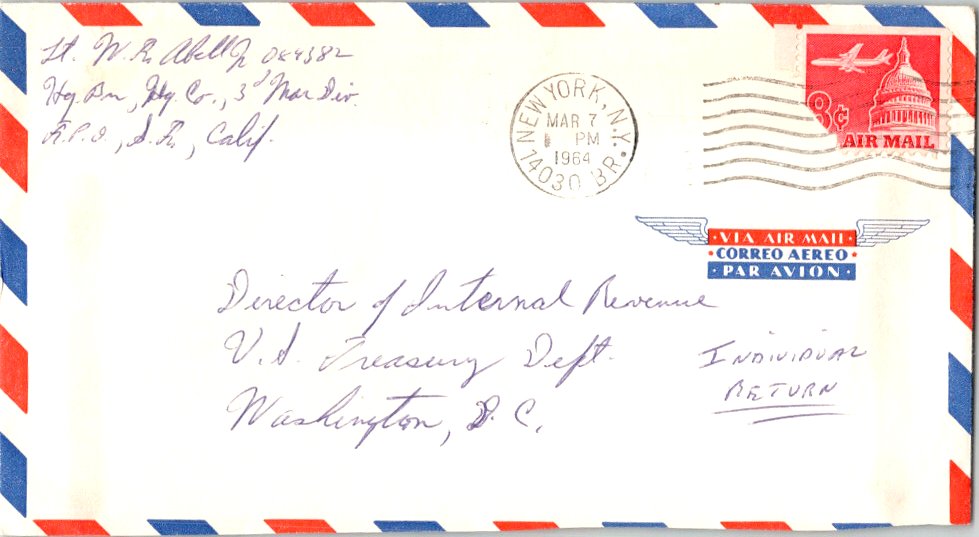 Lt. W. R. Abell Jr 084382
Hq. Bn., Hq. Co., 3d Mar Div.
F.P.O., S.F., Calif.
NEW YORK, N.Y.
MAR 7
PM
1964
14030 BR.
8¢
AIR MAIL
· VIA AIR MAIL ·
· CORREO AEREO ·
· PAR AVION ·
Director of Internal Revenue
U.S. Treasury Dept.
Washington, D.C.
INDIVIDUAL
RETURN